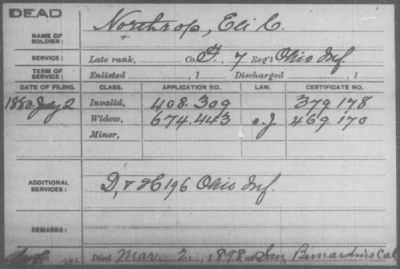 DEAD
NAME OF SOLDIER: Northrop, Eli C.
SERVICE: Late rank, Co. F. 7 Reg't Ohio Inf.
TERM OF SERVICE: Enlisted , 1 Discharged , 1
DATE OF FILING. CLASS. APPLICATION NO. LAW. CERTIFICATE NO.
1880 July 2 Invalid, 408.309 379.178
Widow, 674.443 469.170
Minor,
ADDITIONAL SERVICES: D, & H 196 Ohio Inf.
REMARKS:
Died Mar. 2, 1898 at San Bernardino Cal